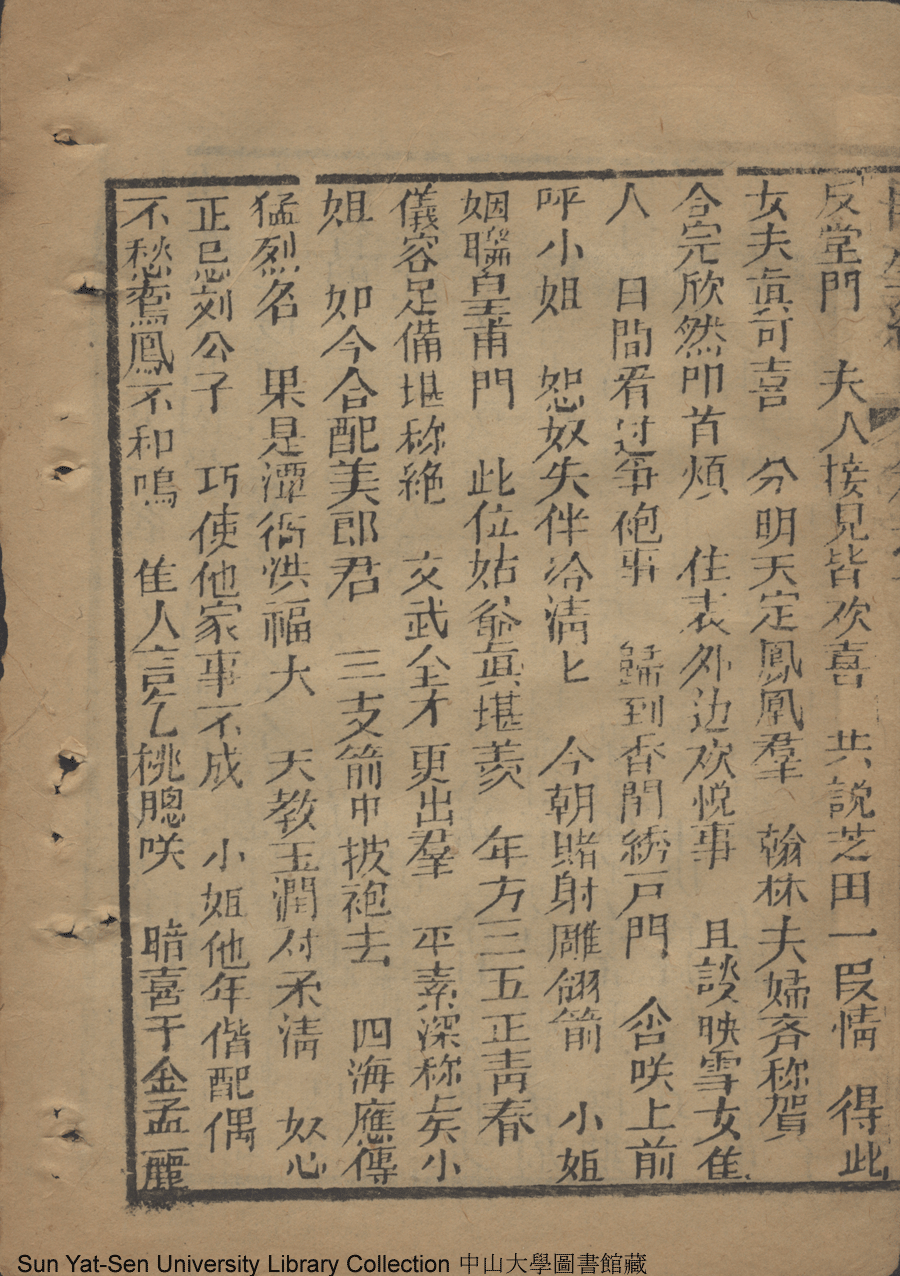 反堂門　夫人接見皆欢喜　共説芝田一段情　得此
女夫真可喜　分明天定鳳凰羣　翰林夫婦斉称賀
合完欣然叩首煩　住表外边欢悅事　且談映雪女佳
人　日間看过爭袍事　歸到香閨綉戸門　含咲上前
呼小姐　恕奴失伴冷清匕　今朝賭射雕翎箭　小姐
姻聯皇甫門　此位姑爺真堪羨　年方三五正青春
儀容足備堪称絶　文武全才更出羣　平素深称矣小
姐　如今合配美郎君　三支箭中披袍去　四海應傳
猛烈名　果是潭衙洪福大　天教玉潤付柔清　奴心
正忌刻公子　巧使他家事不成　小姐他年偕配偶
不愁鸞鳳不和鳴　佳人言乞桃腮咲　暗喜千金孟麗
Sun Yat-Sen University Library Collection 中山大學圖書館藏